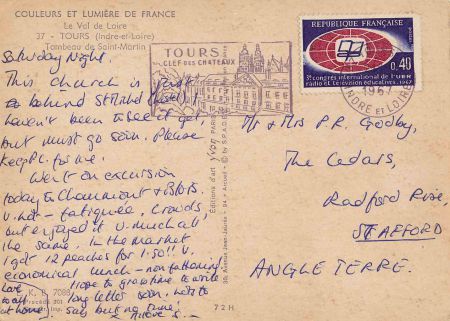 COULEURS ET LUMIÈRE DE FRANCE
Le Val de Loire
37 - TOURS (Indre-et-Loire)
Tombeau de Saint-Martin
Saturday Night.
This church is just
behind St Michel (hotel). I
haven't been to see it yet
but must go soon. Please
keep P.C. for me.
Went on excursion
today to Chaumont & Blois.
V. hot - fatiguée. Crowds,
but enjoyed it v. much all
the same. In the market
I got 12 peaches for 1.50!! V.
economical lunch - non fattening.
Love to all at home.
Hope to gran time to write
long letter soon. Lots to
say but no time!
72 H
Editions d'art yvon
TOURS
CLEF DES CHATEAUX
RÉPUBLIQUE FRANÇAISE
0,40
3e congrès international de l'UER
radio et télévision éducatives, 1967
1967
INDRE ET LOIRE
Mr & Mrs P.R. Godby,
The Cedars,
Radford Rise,
STAFFORD
ANGLETERRE.